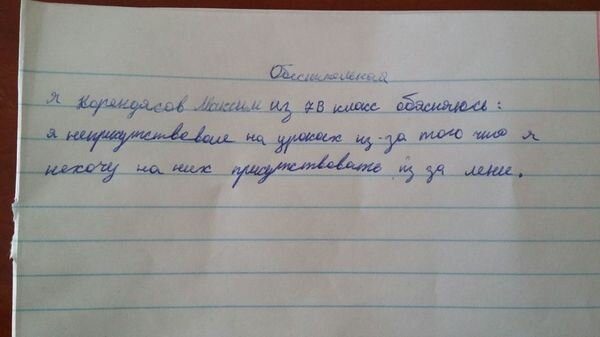 Обяснительная
я Корендясов Максим из 7В класс обясняюсь:
я неприсутствовале на уроках из-за того что я
нехочу на них присутствовать из за лени.